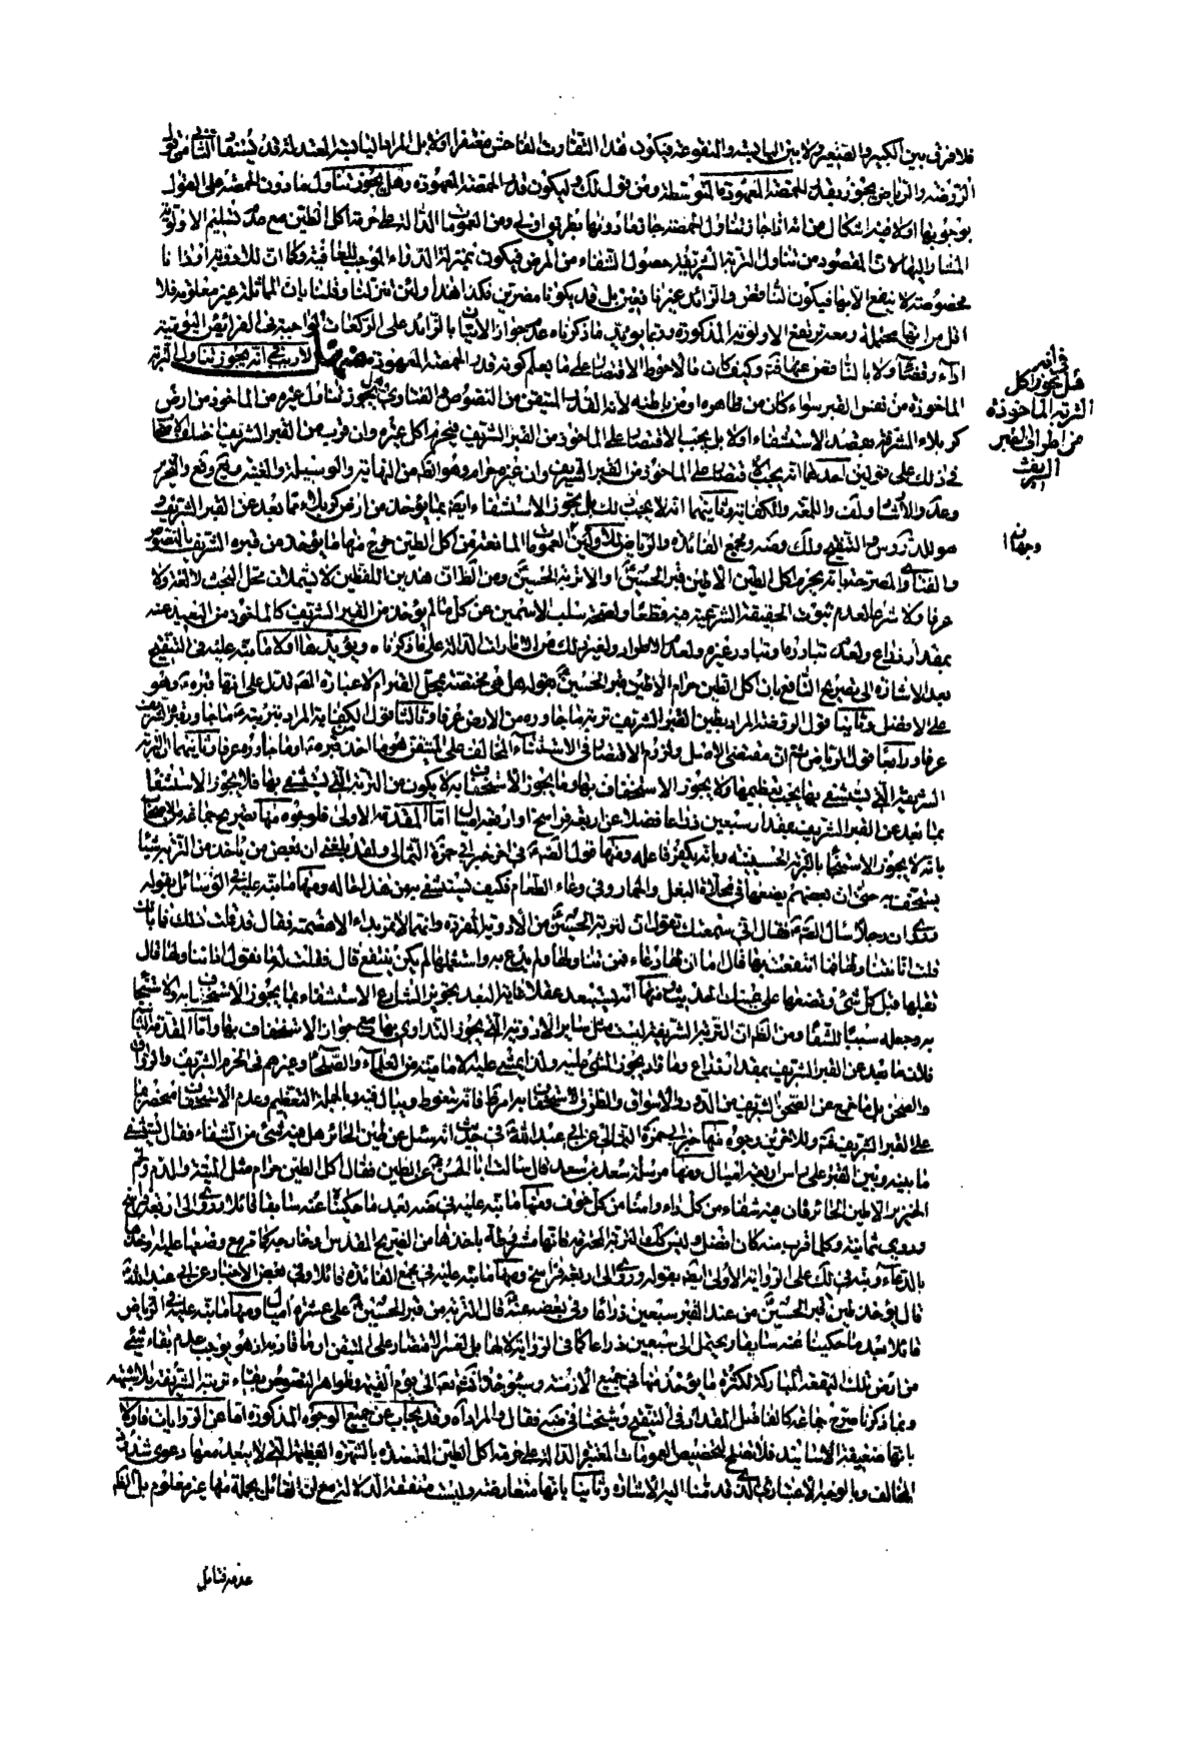 فلا فرق بين الكبير والصغير ولا بين اليابسة والمنقوعة فيكون هذا التفاوت الفاحش مغتفرا او لا بل المراد اليابسة المعتدلة قد
الروضة والرياض يجوز بقدر الحمصة المعهودة المتوسطة ومن قول لك وليكون قدر الحمصة المعهودة وهل يجوز تناول ما دون الحمصة على القول
بوجوبها او لا فيه اشكال من انه اذا جاز تناول الحمصة جاز ما دونها بطريق اولى ومن العمومات الدالة على حرمة اكل الطين مع عدم تسليم الاولوية
المشار اليها لان المقصود من تناول التربة الشريفة حصول الشفاء من المرض فيكون بمنزلة الدواء الموجب للعافية وكما ان للادوية اوزانا
مخصوصة لا ينفع الا بها فيكون الناقص والزائد عنها غير نافعين بل قد يكونا مضرين فكذا هذا ولئن تنزلنا وقلنا بان المماثلة غير معلومة فلا
اقل من انها محتملة ومعه ترتفع الاولوية المذكورة وربما يؤيد ما ذكرناه عدم جواز الاتيان بالزائد على الركعات الواجبة في الفرائض اليومية
اداء وقضاء ولا بالناقص عنها فت وكيف كان فالاحوط الاقتصار على ما يعلم كونه قدر الحمصة المعهودة لا ريب في انه يجوز تناول التربة
الماخوذة من نفس القبر سواء كان من ظاهره او من باطنه لانه القدر المتيقن من النصوص والفتاوى وهل يجوز تناول غيره من الماخوذ من ارض
كربلاء المشرفة بقصد الاستشفاء او لا بل يجب الاقتصار على الماخوذ من القبر الشريف فيحرم اكل غيره وان قرب من القبر الشريف اختلف
في ذلك على قولين احدهما انه يجب الاقتصار على الماخوذ من القبر الشريف وان غيره حرام وهو الظاهر من النهاية والوسيلة والغنية
وعد والارشاد ولف واللمعة والكفاية وثانيهما انه لا يجب ذلك بل يجوز الاستشفاء ايضا بما يؤخذ من ارض كربلاء مما بعد عن القبر الشريف
هو للدروس والتنقيح ولك وضه ومجمع الفائدة والرياض للاولين العمومات المانعة من اكل الطين خرج منها ما يؤخذ من قبره الشريف بالنصوص
والفتاوى المصرحة بانه يحرم اكل الطين الا طين قبر الحسين او الا تربة الحسين ومن الظاهر ان هذين اللفظين لا يشملان محل البحث لا لغة ولا
عرفا ولا شرعا لعدم ثبوت الحقيقة الشرعية فيه قطعا ولصحة سلب الاسمين عن كل ما لم يؤخذ من القبر الشريف كالماخوذ من البعيد عنه
بمقدار ذراع ولعدم تبادرها وتبادر غيره ولعدم الاطراد ولغير ذلك من الامارات الدالة على ما ذكرناه ويؤيد هذا اولا ما نبه عليه في التنقيح
بعد الاشارة الى تصريح النافع بان اكل الطين حرام الا طين قبر الحسين بقوله هل هو مختص بمحل القبر ام لا عبارة المصنف تدل على انها قبره وهو
على الافضل وثانيا قول الروضة المراد بطين القبر الشريف تربة ما جاوره من الارض عرفا وثالثا قول الكفاية المراد بتربته ما جاور قبره الشريف
عرفا ورابعا قول الرياض ثم ان مقتضى الاصل ولزوم الاقتصار في الاستثناء المخالف على المتيقن هو ما اخذ من قبره او ما جاوره عرفا ثانيهما ان التربة
الشريفة التي يستشفى بها يجب تعظيمها ولا يجوز الاستخفاف بها وما يجوز الاستخفاف به لا يكون من التربة التي يستشفى بها فلا يجوز الاستشفاء
بما بعد عن القبر الشريف بمقدار سبعين ذراعا فضلا عن اربعة فراسخ او اربعة اميال اما المقدمة الاولى فلوجوه منها تصريح جماعة
بانه لا يجوز الاستخفاف بالتربة الحسينية وبانه يكفر فاعله ومنها قول الصادق في اخر خبر ابي حمزة الثمالي ولقد بلغني ان بعض من ياخذ من التربة شيئا
يستخف به حتى ان بعضهم يضعها في مخلاة البغل والحمار وفي وعاء الطعام فكيف يستشفي به من هذا حاله ومنها ما نبه عليه في الوسائل بقوله
روي ان رجلا سال الصادق فقال اني سمعتك تقول ان تربة الحسين من الادوية المفردة وانها لا تمر بداء الا هضمته فقال قد قلت ذلك فما بالك
قلت انا نتناولها فما انتفعت بها قال اما ان لها دعاء فمن تناولها ولم يدع به واستعملها لم يكن ينتفع قال فقلت له ما نقول اذا تناولها قال
تقبلها قبل كل شيء وتضعها على عينيك الحديث ومنها انه ليستبعد عقلا غاية البعد تجويز الشارع الاستشفاء بما يجوز الاستخفاف به
به وجعله سببا للشفاء ومن الظاهر ان التربة الشريفة ليست مثل سائر الادوية التي يجوز التداوي بها مع جواز الاستخفاف بها واما المقدمة الثانية
فلان ما بعد عن القبر الشريف بمقدار ذراع وما قد يجوز المشي عليه ولذا يمشي عليه الامامية من العلماء والصلحاء وغيرهم في الحرم الشريف والرواق
والصحن بل ما خرج عن الصحن الشريف من الدور والاسواق والطرق الاستخفاف به فانه يتغوط ويبال فيه وبالجملة التعظيم وعدم الاستخفاف
على القبر الشريف فت وللاخرين وجوه منها خبر ابي حمزة الثمالي عن ابي عبد الله في حديث انه سئل عن طين الحائر هل فيه شيء من الشفاء فقال يستشفى
ما بينه وبين القبر على راس اربعة اميال ومنها مرسلة سعد بن سعد قال سالت ابا الحسن عن الطين فقال اكل الطين حرام مثل الميتة والدم ولحم
الخنزير الا طين الحائر فان فيه شفاء من كل داء وامنا من كل خوف ومنها ما نبه عليه في ضه بعد ما حكينا عنه سابقا قائلا وروي الى اربعة فراسخ
وروي ثمانية وكلما قرب منه كان افضل وليس كذلك التربة المحترمة فانها مشروطة باخذها من الضريح المقدس وخارجه كما مر مع وضعها عليه
بالدعاء ونبه في لك على الرواية الاولى ايضا بقوله وروي الى اربعة فراسخ ومنها ما نبه عليه في مجمع الفائدة قائلا وفي بعض الاخبار عن ابي عبد الله
قال يؤخذ طين قبر الحسين من عند القبر سبعين ذراعا وفي بعضه عنه قال التربة من قبر الحسين على عشرة اميال ومنها ما نبه عليه في الرياض
قائلا بعد ما حكينا عنه سابقا ويحتمل الى سبعين ذراعا كما في الرواية لا لها بل لعسر الاقتصار على المتيقن او ما قاربه اذ هو يوجب عدم بقاء شيء
من ارض تلك البقعة المباركة لكثرة ما يؤخذ منها في جميع الازمنة وسيؤخذ ان شاء الله تعالى الى يوم القيمة وظواهر النصوص بقاء تربته الشريفة بلا شبهة
وبما ذكرنا صرح جماعة كالفاضل المقداد في التنقيح وشيخنا في ضه فقال والمراد اه وقد يجاب عن جميع الوجوه المذكورة اما عن الروايات فاولا
بانها ضعيفة الاسانيد فلا تصلح لتخصيص العمومات المعتبرة الدالة على حرمة اكل الطين المعتضدة بالشهرة العظيمة التي لا يبعد معها دعوى شذوذ
المخالف وبالوجه الاعتباري الذي قدمنا اليه الاشارة وثانيا بانها متعارضة وليست متفقة الدلالة مع ان القائل بجملة منها غير معلوم بل الظاهر
في انه
هل يجوز اكل
التربة الماخوذة
من اطراف القبر
الشريف
وجهان
عدمه فتامل